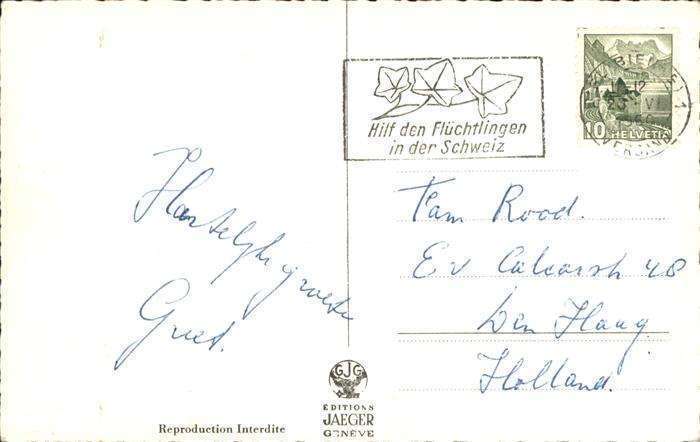 Hartelijke groeten
Greet.
Reproduction Interdite
GJG
ÉDITIONS
JAEGER
GENÈVE
Hilf den Flüchtlingen
in der Schweiz
BIEL
12
VI
10 HELVETIA
VERSAND
Fam Rood.
E v Calcarstr 48
Den Haag
Holland.